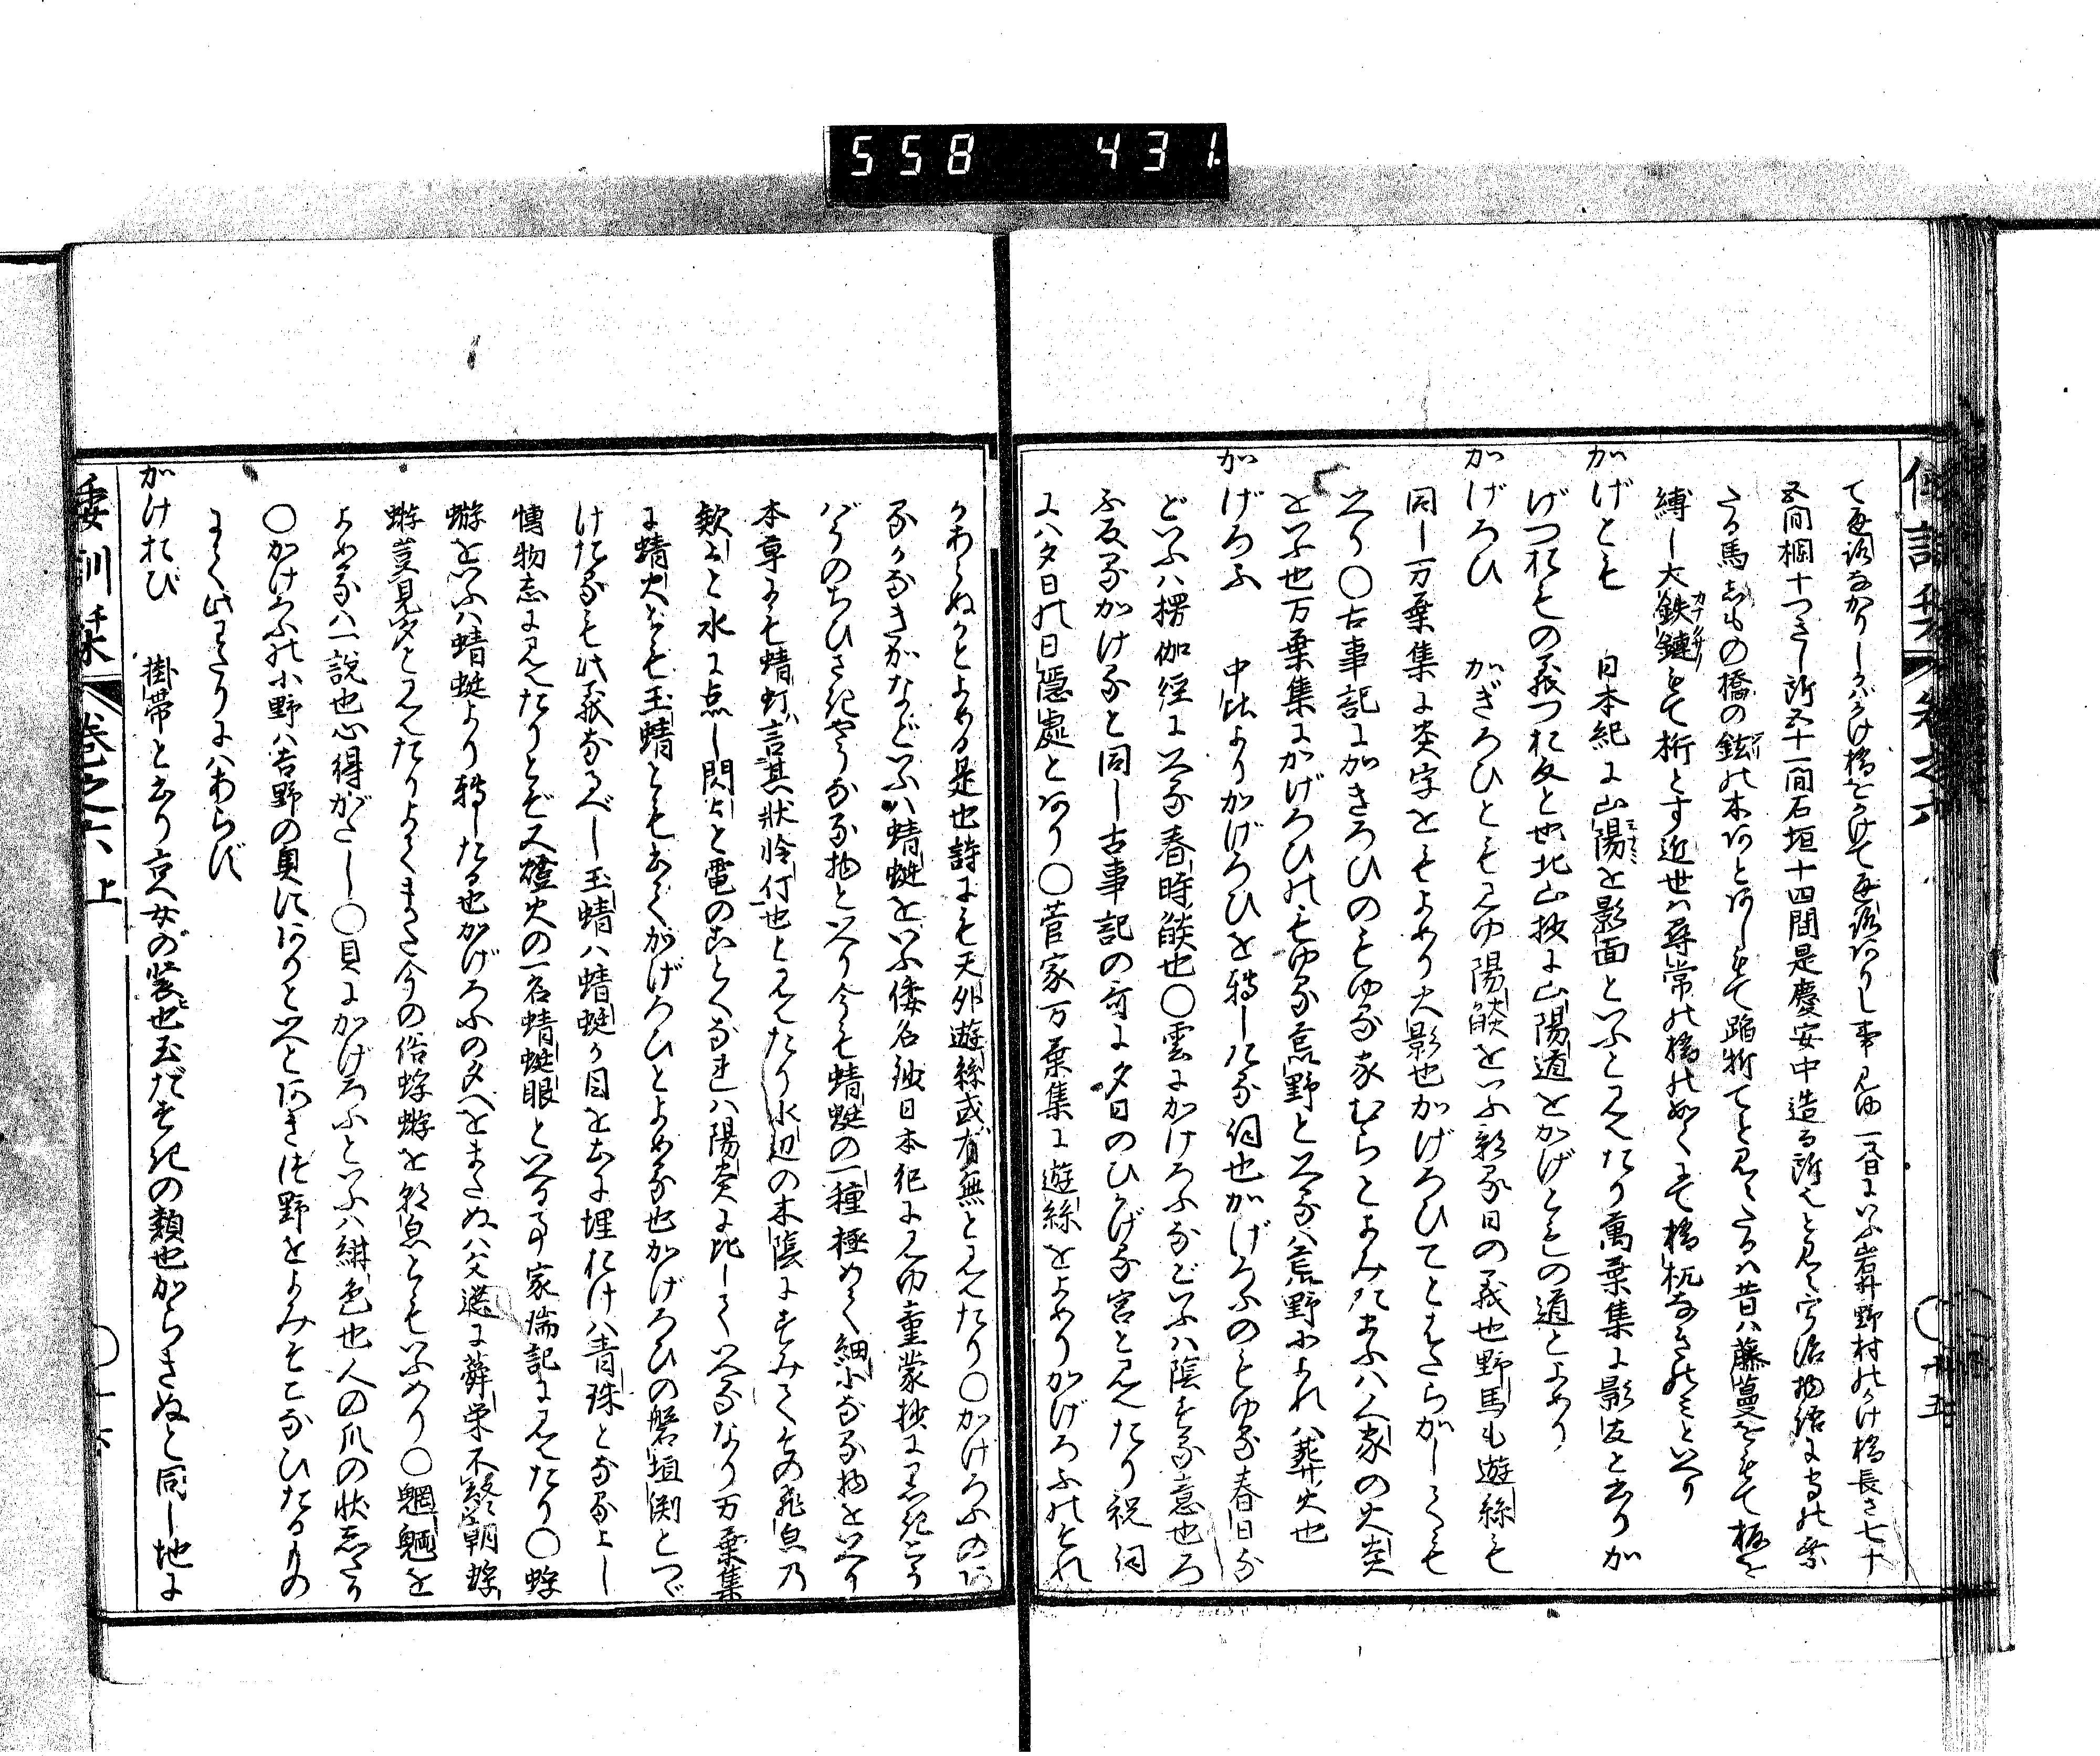 558 431
て通路なかりしかバかけ橋をかけて通路ありし事見ゆ一書にいふ岩井野村のかけ橋長さ七十
五間桐十つさし所五十一間石垣十四間是慶安中造る所也と見え宇治拾遺に
たる馬しもの橋の鉉の木ありとありしもて踏折てと見えたるハ昔ハ藤蔓をもて板を
縛し大鉄鏈もて桁とす近世ハ尋常の橋の如くにて橋杭なきのミといへり
かげとも 日本紀に山陽を影面といふと見えたり萬葉集に影友と書りか
げつおもの義つお反と也北山抄に山陽道をかげともの道とよめり
かげろひ かぎろひとも見ゆ陽燄をいふ影る日の義也野馬も遊絲も
同し万葉集に炎字をもよめり火影也かげろひてともたらがしくも
いへり〇古事記にかきろひのもゆる家むらとよみたまふハ人家の火炎
をいふ也万葉集にかげろひのもゆる荒野といへるハ荒野によれハ葬火也
かげろふ 中比よりかげろひを轉したる詞也かげろふのもゆる春日な
どいふハ楞伽経にいへる春時燄也〇雲にかけろふなどいふハ陰する意也ろ
ふ反るかける と同し古事記の哥に夕日のひかげる宮と見えたり祝詞
にハ夕日の日隠處とあり〇菅家万葉集に遊絲をよめりかげろふのそれ
かあらぬかとよめる是也詩にも天外遊絲或有無と見えたり〇かげろふのあ
るかなきかなどいふハ蜻蜓をいふ倭名鈔日本紀に見ゆ童蒙抄に黒きとう
ばうのちひさきやうなる物といへり今も蜻蜓の一種極めて細小なる物をいへり
本草にも蜻虰言其状伶仃也と見えたり水辺の木陰にすみてその飛息乃
欵々と水に点し閃々と電のことくなれハ陽炎に比していへるなり万葉集
に蜻火とも玉蜻とも書てかげろひとよめる也かげろひの磐垣渕とつゞ
けたるも此義なるべし玉蜻ハ蜻蜓の目を土に埋おけハ青珠となるよし
博物志に見えたりとぞ又螢火の一名蜻蜓眼といへる事家瑞記に見えたり〇蜉
蝣をいふハ蜻蜓より轉したる也かげろふの夕へをまたぬハ文選に蕣栄不終朝蜉
蝣豈見夕と見えたりよくまた今の俗蜉蝣を朝息ともいふめり〇魍魎を
よめるハ一説也心得がたし〇貝にかげろふといふハ紺色也人の爪の状したり
〇かけろふの小野ハ吉野の奥にありといへとあきつ野をよみそこなひたるもの
にて此わたりにハあらじ
かけおび 掛帯と書り京女の装也玉だすきの類也からきぬと同し地に
倭訓栞 巻之六 上